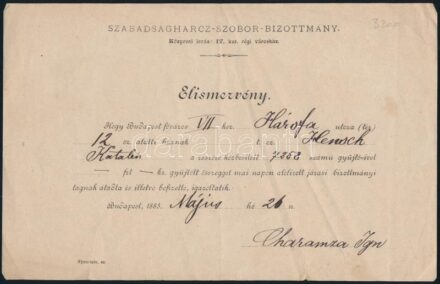 SZABADSÁGHARCZ-SZOBOR-BIZOTTMÁNY.
Központi iroda: IV. ker. régi városház.
Elismervény.
Hogy Budapest főváros VII ker. Hársfa utcza (tér)
12 sz. alatti háznak t. cz. Hensch
Katalin a részére kézbesített 7358 számú gyűjtőívet
— frt — kr. gyűjtött összeggel mai napon alólirt járási bizottmányi
tagnak átadta és illetve befizette, igazoltatik.
Budapest, 1885. Május hó 26 n.
Charamza Ign